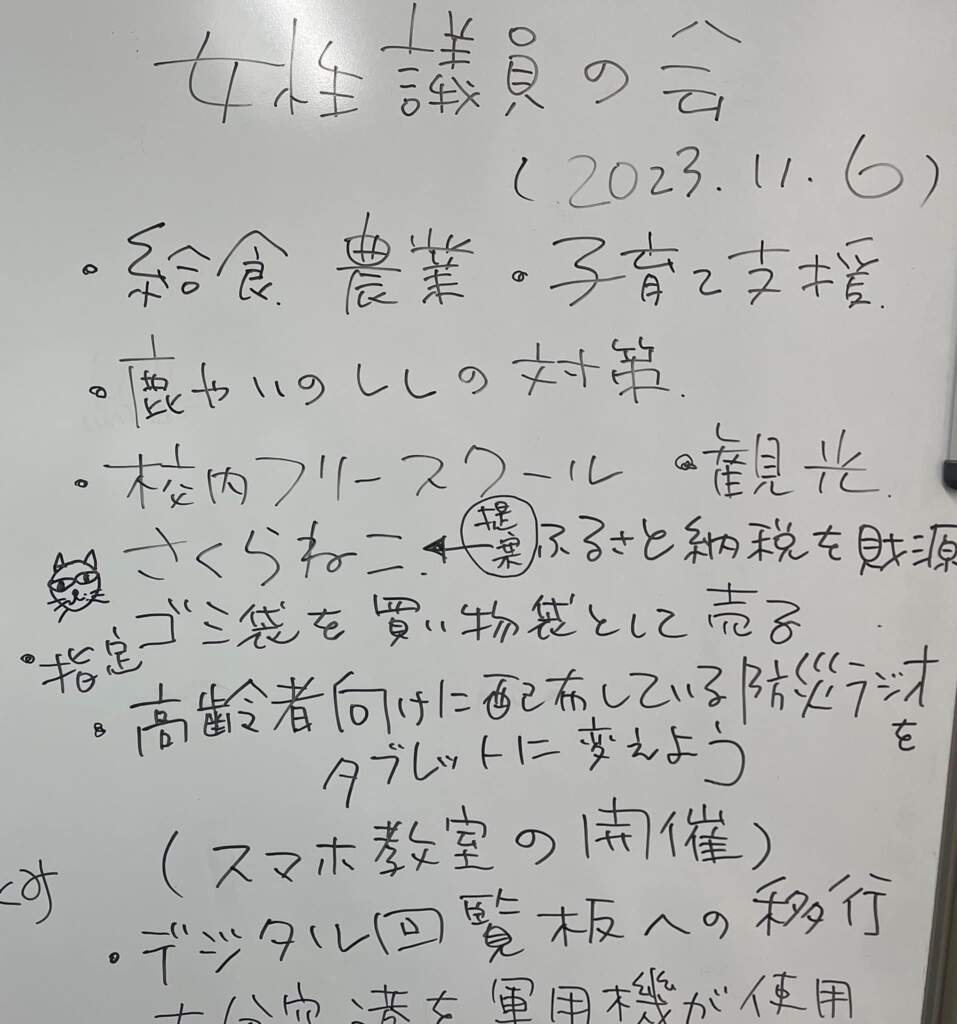 女性議員の会
(2023.11.6)
・給食 農業 ・子育て支援
・鹿やいのししの対策
・校内フリースクール ・観光
さくらねこ ← 提案 ふるさと納税を財源
・指定ゴミ袋を買い物袋として売る
・高齢者向けに配布している防災ラジオを
タブレットに変えよう
(スマホ教室の開催)
・デジタル回覧板への移行
大分空港を軍用機が使用